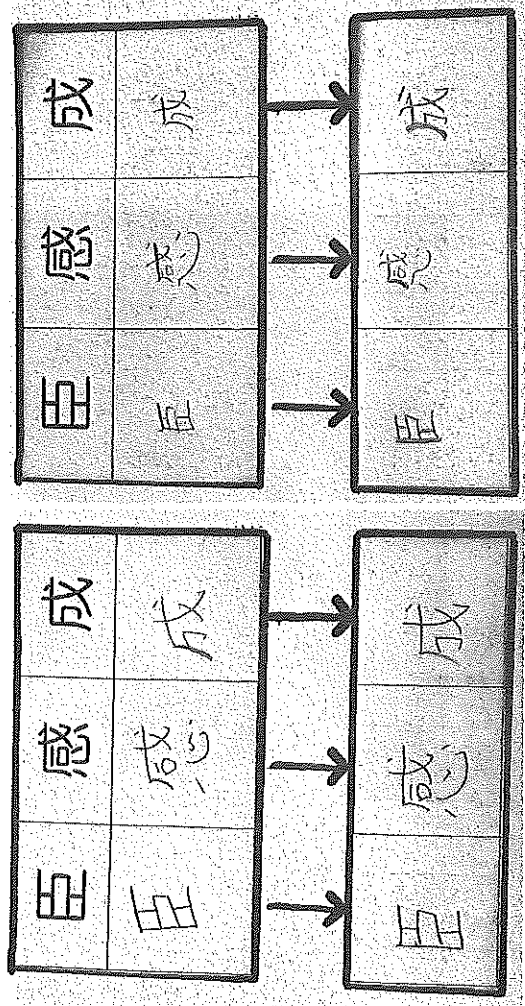 成 成 成
感 感 感
臣 臣 臣
成 成 成
感 感 感
臣 臣 臣